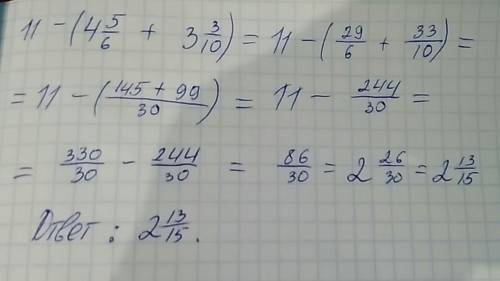 11 - (4 5/6 + 3 3/10) = 11 - (29/6 + 33/10) =
= 11 - (145 + 99/30) = 11 - 244/30 =
= 330/30 - 244/30 = 86/30 = 2 26/30 = 2 13/15
Ответ: 2 13/15.